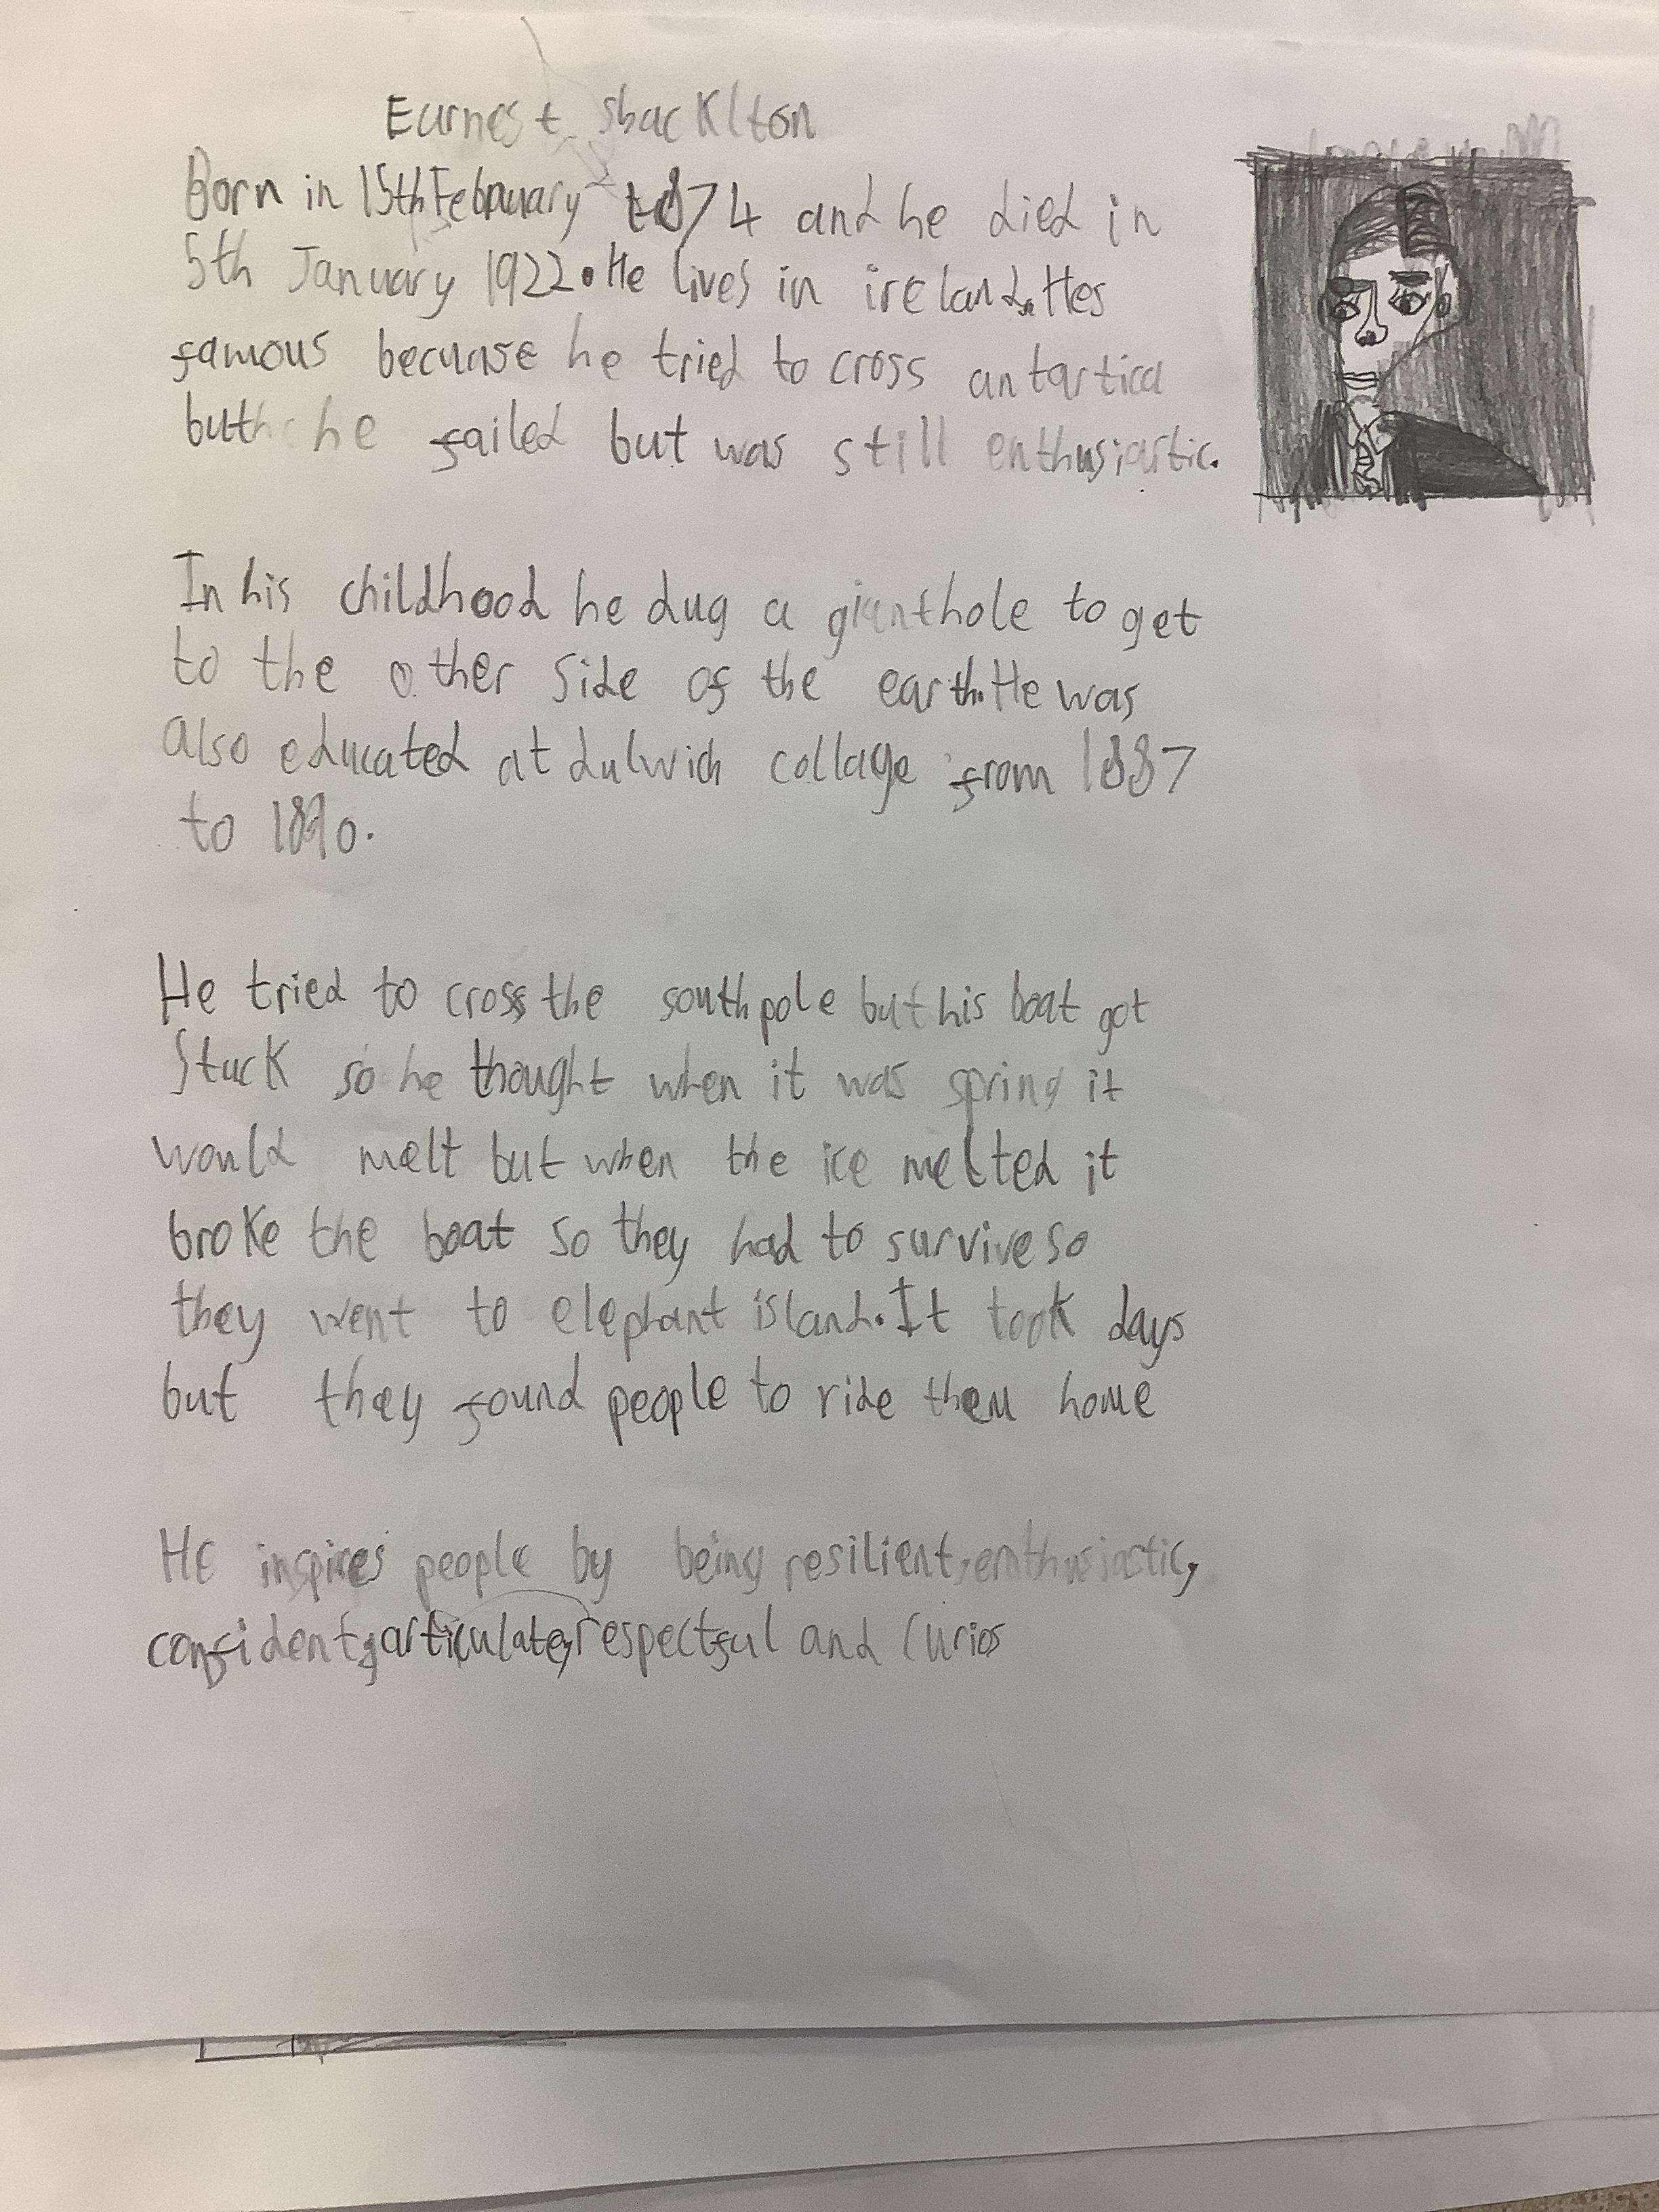 Earnest Shacklton
Born in 15th February 1874 and he died in
5th January 1922. He lives in ireland. Hes
famous becuase he tried to cross antartica
but he failed but was still enthusiastic.
In his childhood he dug a giant hole to get
to the other side of the earth. He was
also educated at dulwich collage from 1887
to 1890.
He tried to cross the south pole but his boat got
stuck so he thought when it was spring it
would melt but when the ice melted it
broke the boat so they had to survive so
they went to elephant island. It took days
but they found people to ride them home
He inspires people by being resilient, enthusiastic,
confident, articulate, respectful and curios